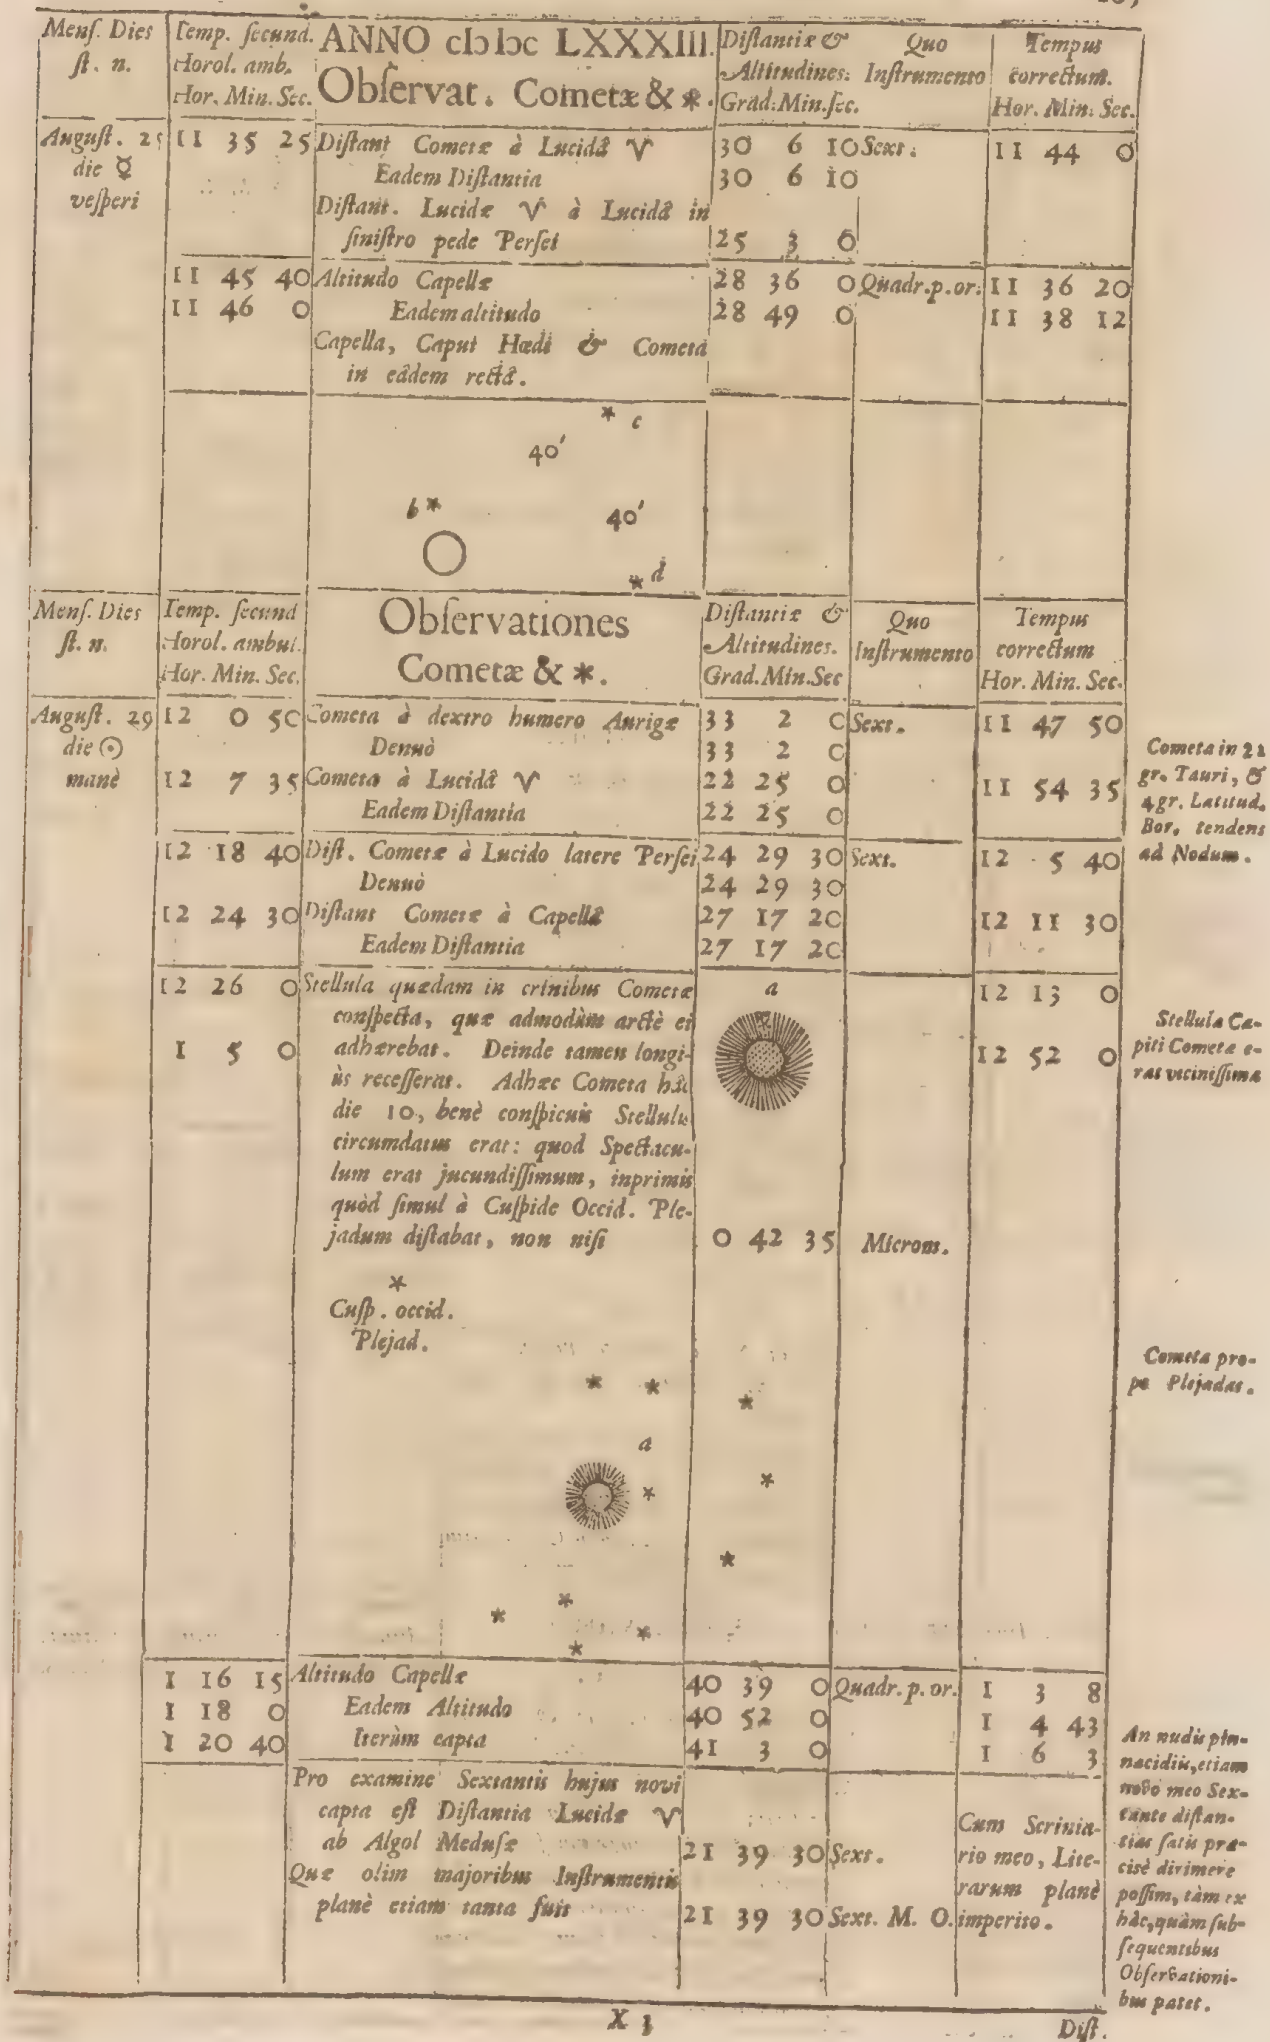 Menſ. Dies ſt. n. Temp. ſecund. Horol. amb. Hor. Min. Sec. ANNO cIↃ IↃc LXXXIII. Obſervat. Cometæ & *. Diſtantiæ & Altitudines. Grad: Min. ſec. Quo Inſtrumento Tempus correctum. Hor. Min: Sec.
Auguſt. 11 35 25 Diſtant Cometæ à Lucidâ ♈ 30 6 10 Sext. 11 44 0
die ☿ Eadem Diſtantia 30 6 10
veſperi Diſtant. Lucidæ ♈ à Lucidâ in
ſiniſtro pede Perſei 25 3 0
11 45 40 Altitudo Capellæ 28 36 0 Quadr. p. or. 11 36 20
11 46 0 Eadem altitudo 28 49 0 11 38 12
Capella, Caput Hœdi & Cometa
in eâdem rectâ.
* c
40′
b *
40′
* d
Menſ. Dies ſt. n. Temp. ſecund Horol. ambul. Hor. Min. Sec. Obſervationes Cometæ & *. Diſtantiæ & Altitudines. Grad. Min. Sec Quo Inſtrumento Tempus correctum Hor. Min. Sec.
Auguſt. 29 12 0 50 Cometa à dextro humero Aurigæ 33 2 0 Sext. 11 47 50
die ☉ Denuò 33 2 0
manè 12 7 35 Cometa à Lucidâ ♈ 22 25 0 11 54 35
Eadem Diſtantia 22 25 0
Cometa in 21
gr. Tauri, &
4 gr. Latitud.
Bor. tendens
ad Nodum.
12 18 40 Diſt. Cometæ à Lucido latere Perſei 24 29 30 Sext. 12 5 40
Denuò 24 29 30
12 24 30 Diſtant Cometæ à Capellâ 27 17 20 12 11 30
Eadem Diſtantia 27 17 20
12 26 0 Stellula quædam in crinibus Cometæ a 12 13 0
conſpecta, quæ admodùm arctè ei
1 5 0 adhærebat. Deinde tamen longi- 12 52 0
ùs receſſerat. Adhæc Cometa hâc
die 10, benè conſpicuis Stellulis
circumdatus erat: quod Spectacu-
lum erat jucundiſſimum, inprimis
quòd ſimul à Cuſpide Occid. Ple-
jadum diſtabat, non niſi 0 42 35 Microm.
Stellula Ca-
piti Cometæ e-
rat viciniſſima
*
Cuſp. occid.
Plejad.
Cometa pro-
pe Plejadas.
a
1 16 15 Altitudo Capellæ 40 39 0 Quadr. p. or. 1 3 8
1 18 0 Eadem Altitudo 40 52 0 1 4 43
1 20 40 Iterùm capta 41 3 0 1 6 3
Pro examine Sextantis hujus novi
capta eſt Diſtantia Lucidæ ♈
ab Algol Meduſæ 21 39 30 Sext.
Quæ olim majoribus Inſtrumentis
planè etiam tanta fuit 21 39 30 Sext. M. O.
Cum Scrinia-
rio meo, Lite-
rarum planè
imperito.
An nudis pin-
nacidiis, etiam
novo meo Sex-
tante diſtan-
tias ſatis præ-
ciſè dirimere
poſſim, tàm ex
hâc, quàm ſub-
ſequentibus
Obſervationi-
bus patet.
X 3
Diſt.